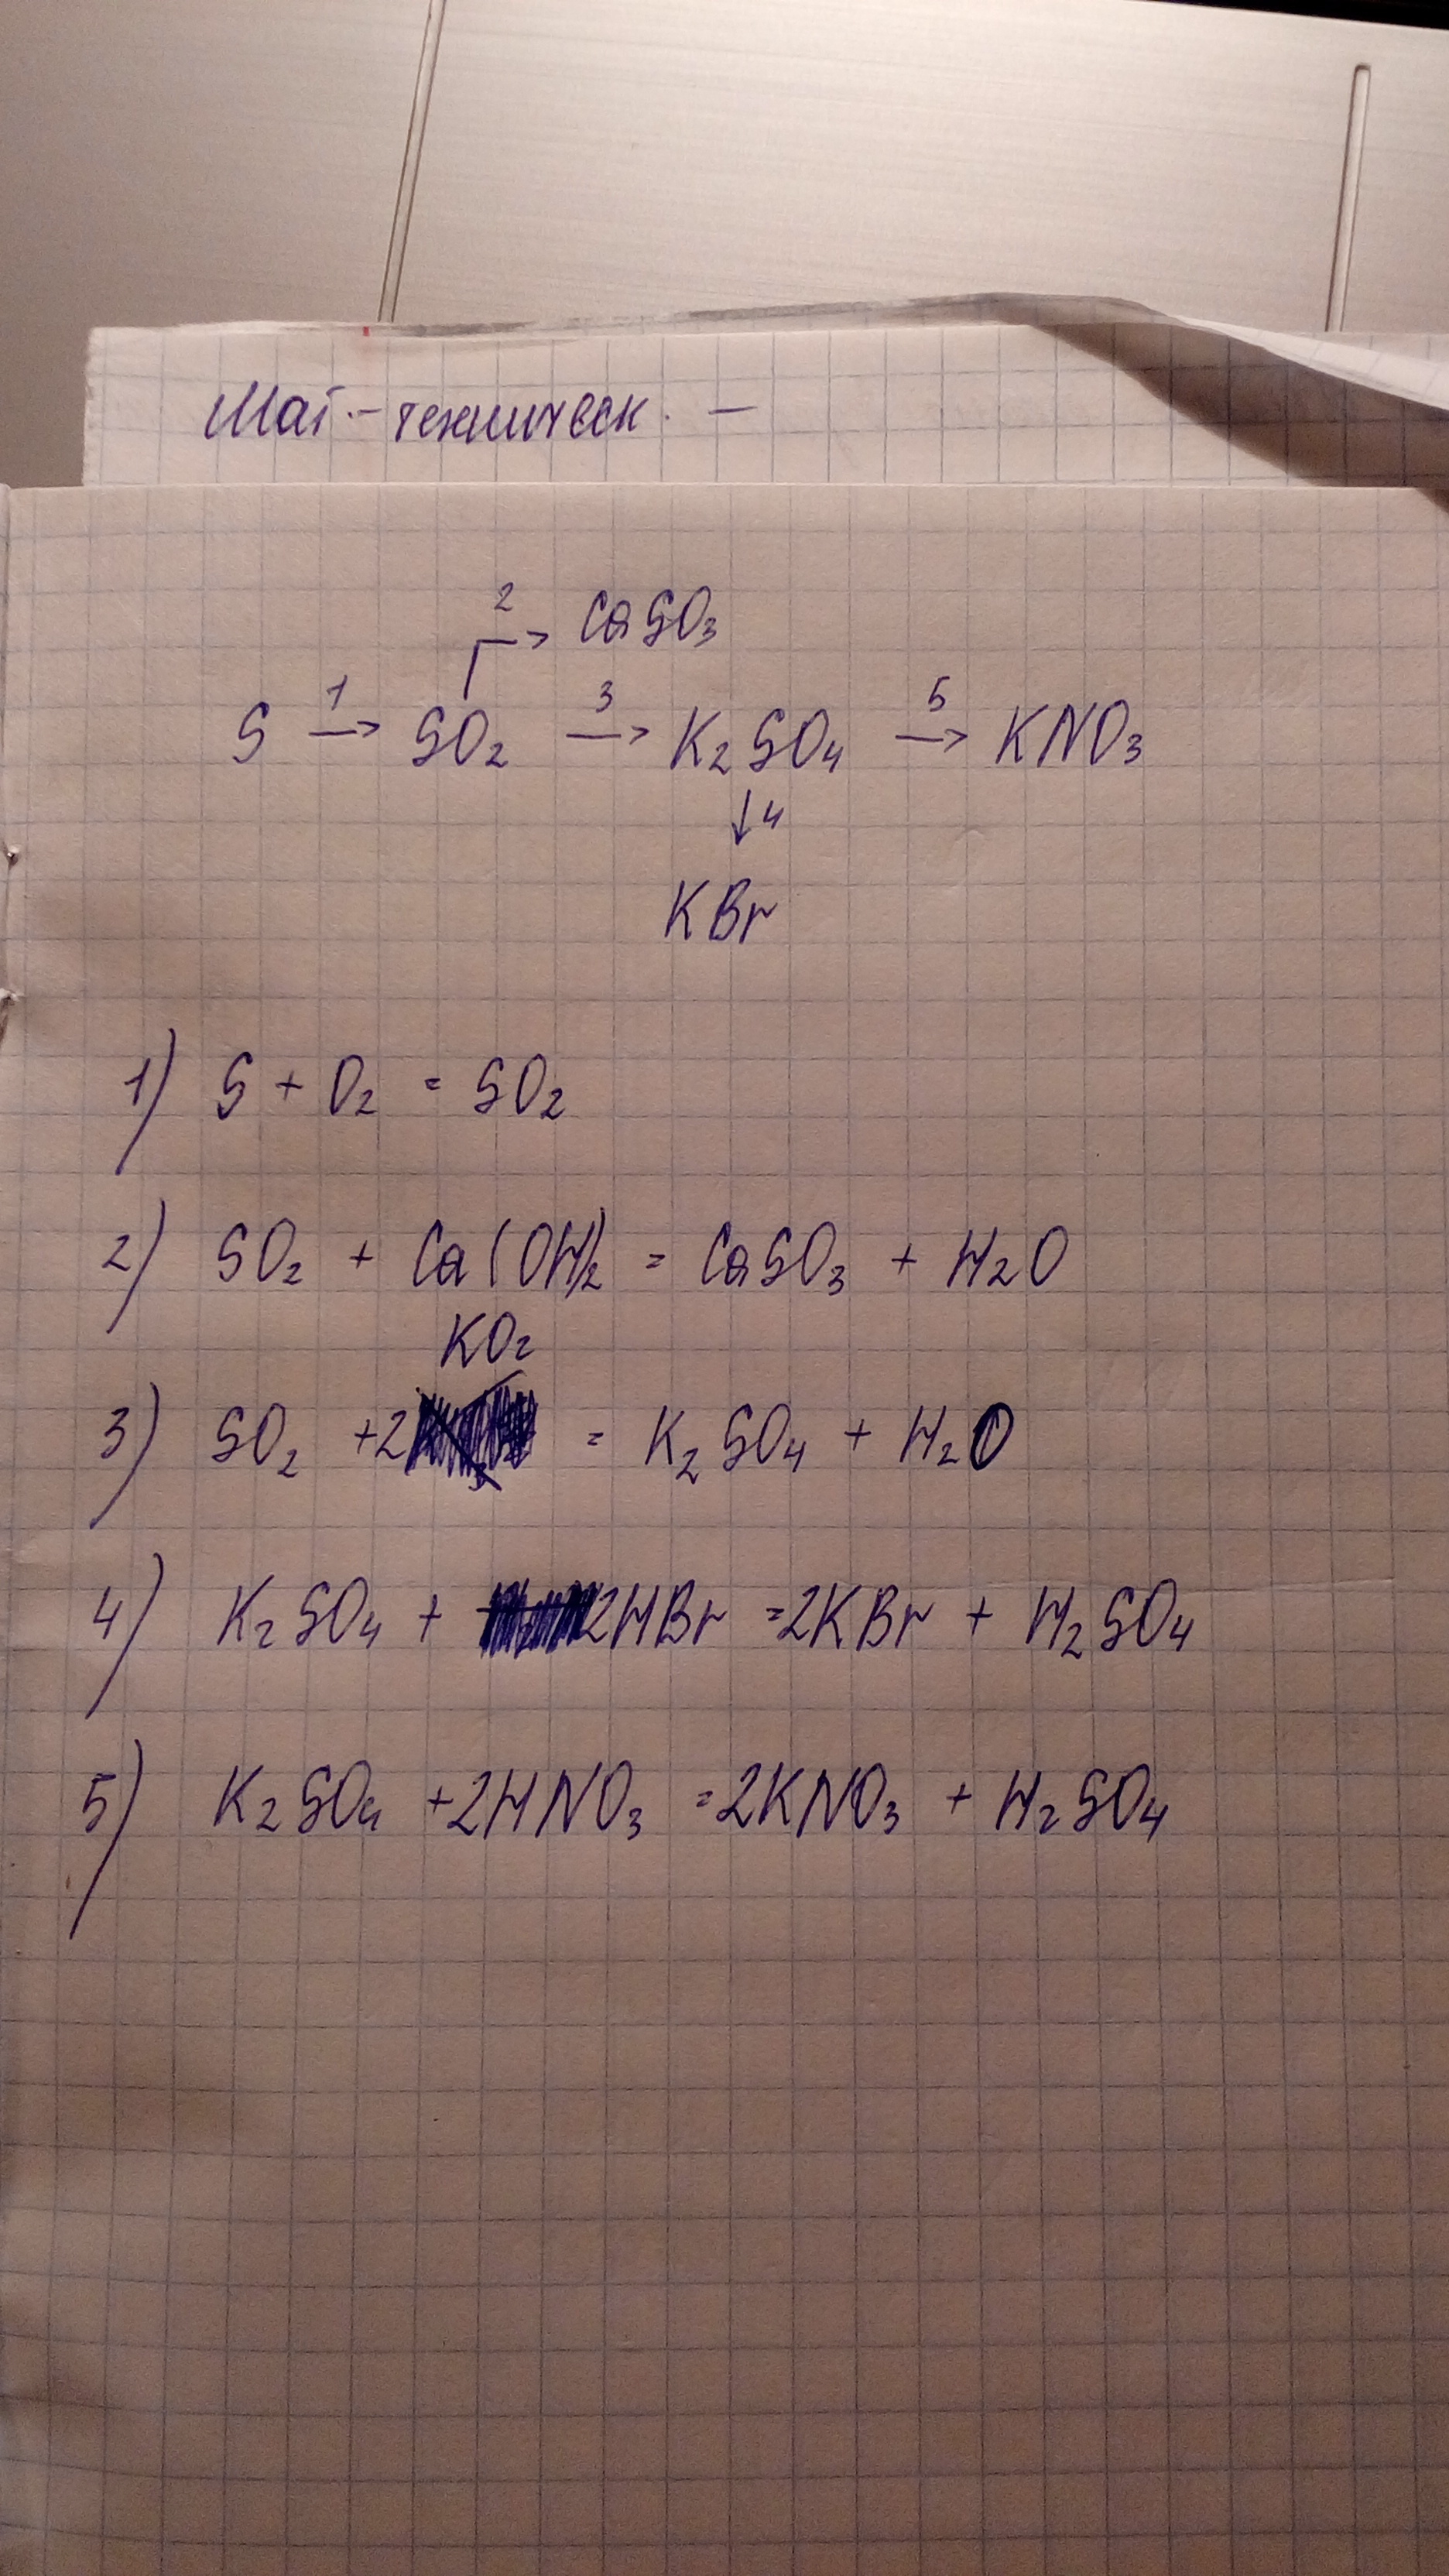 Мат.-техническ. —
2 CaSO₃
S 1→ SO₂ 3→ K₂SO₄ 5→ KNO₃
↓4
KBr
1) S + O₂ = SO₂
2) SO₂ + Ca(OH)₂ = CaSO₃ + H₂O
KO₂
3) SO₂ +2 = K₂SO₄ + H₂O
4) K₂SO₄ + 2HBr =2KBr + H₂SO₄
5) K₂SO₄ +2HNO₃ =2KNO₃ + H₂SO₄